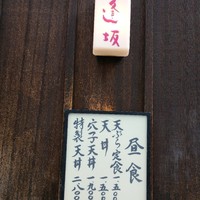 逢坂
昼食
天ぷら定食 一、五〇〇
天丼 一、五〇〇
穴子天丼 一、九〇〇
特製天丼 二、八〇〇